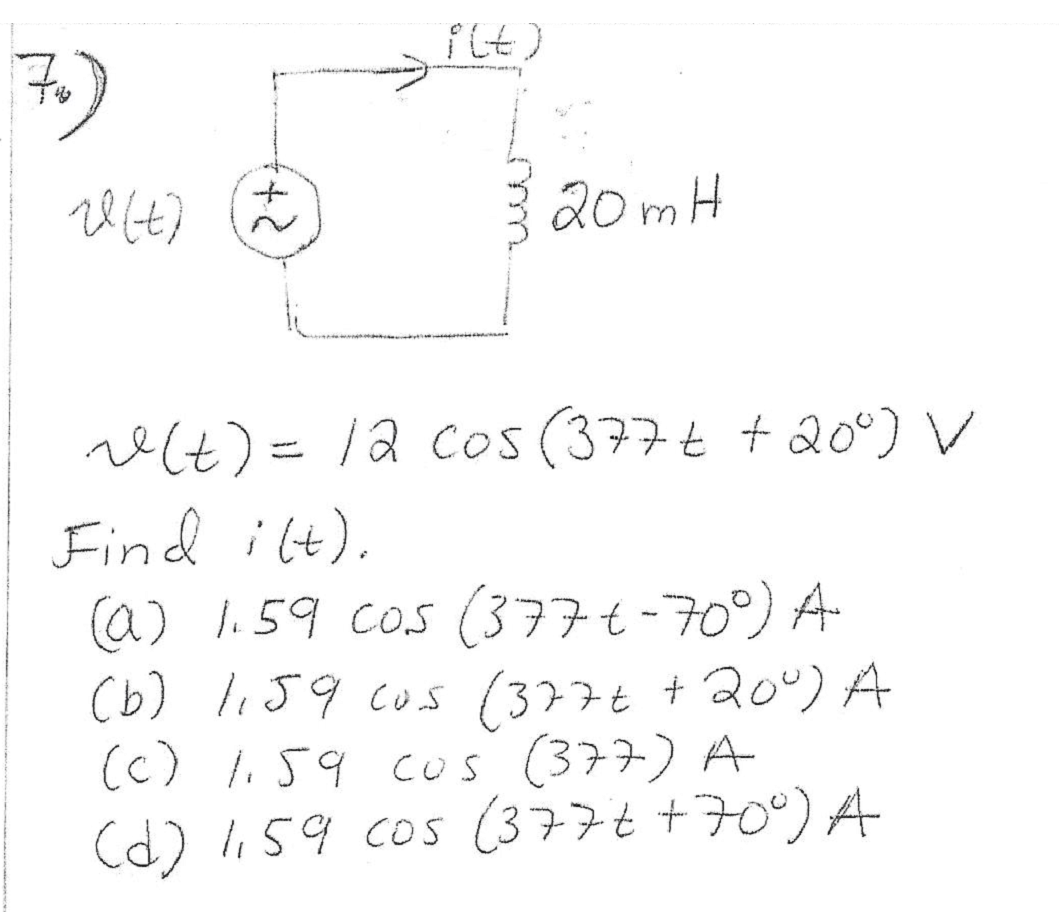 i(t)
7.)
v(t) + ~ 20 mH
v(t) = 12 cos (377t + 20°) V
Find i(t).
(a) 1.59 cos (377t - 70°) A
(b) 1.59 cos (377t + 20°) A
(c) 1.59 cos (377) A
(d) 1.59 cos (377t + 70°) A